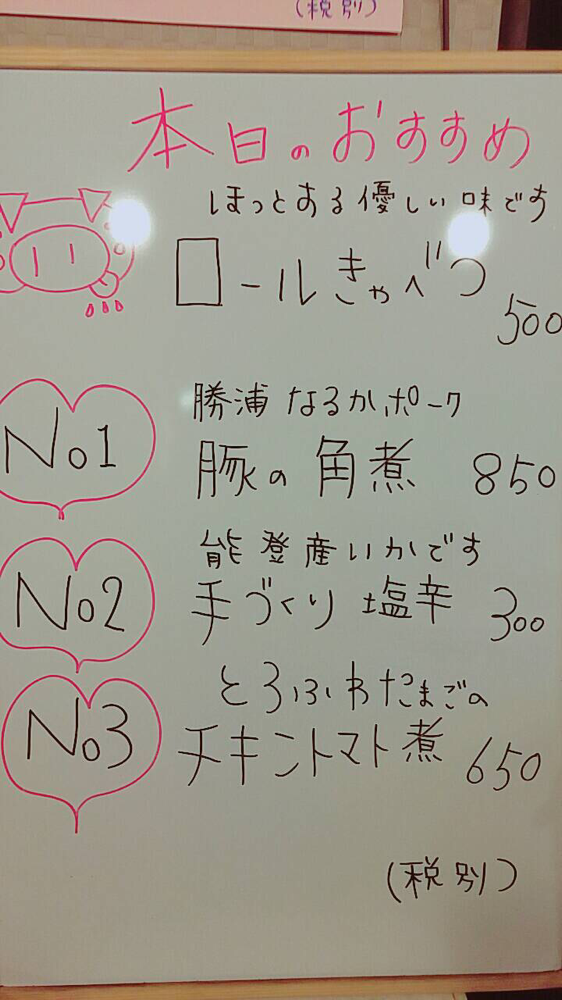 (税別)
本日のおすすめ
ほっとする優しい味です
ロールきゃべつ
500
No1
勝浦なるかポーク
豚の角煮 850
No2
能登産いかです
手づくり 塩辛 300
No3
とろふわたまごの
チキントマト煮 650
(税別)